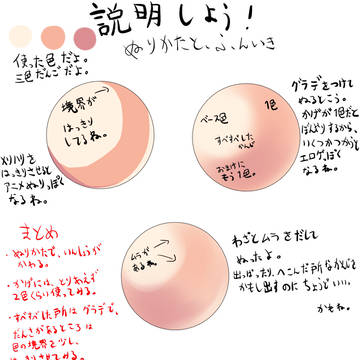 説明しよう！
ぬりかたと、ふんいき
使った色だよ。
三色だんごだよ。
境界が
はっきり
してるね。
メリハリを
はっきりさせると
アニメぬりっぽく
なるね。
ベース色
1色
すべすべした
かんじ
おまけに
もう1色。
グラデをつけて
ぬるとこう。
かげが1色だと
ぼんやりするから、
いくつかつかうと
エロゲっぽく
なるね。
ムラが
あるね
わざとムラをだして
ぬったよ。
出っぱったり、へこんだ所なかんじを
かもし出すのにちょうどいい、
かもね。
まとめ
・ぬりかたで、いんしょうが
かわる。
・かげには、とりあえず
2色くらい使ってみる。
・すべすべした所はグラデで、
だんさがあるところは
色の境界を少し、
はっきりさせてみる。